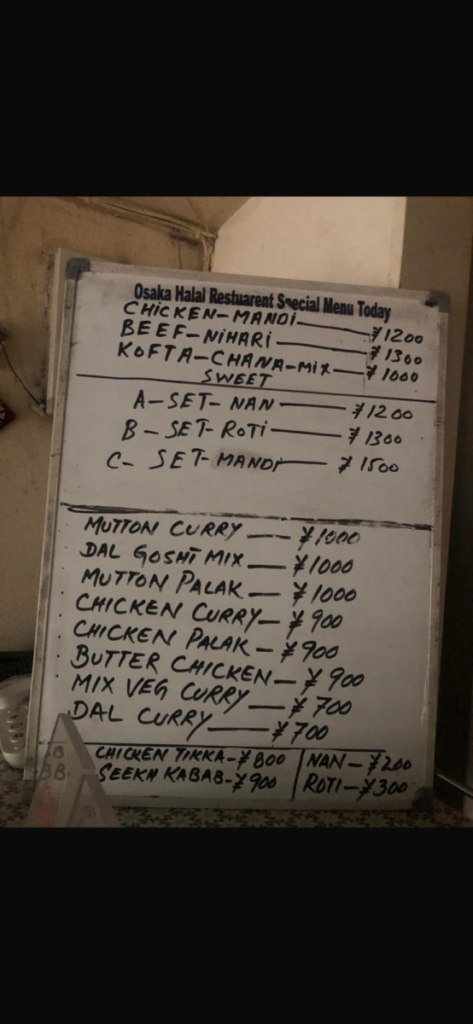 Osaka Halal Restuarent Special Menu Today
CHICKEN-MANDI — ¥1200
BEEF-NIHARI — ¥1300
KOFTA-CHANA-MIX — ¥1000
SWEET
A-SET-NAN — ¥1200
B-SET-ROTI — ¥1300
C-SET-MANDI — ¥1500
MUTTON CURRY — ¥1000
DAL GOSHT MIX — ¥1000
MUTTON PALAK — ¥1000
CHICKEN CURRY — ¥900
CHICKEN PALAK — ¥900
BUTTER CHICKEN — ¥900
MIX VEG CURRY — ¥700
DAL CURRY — ¥700
CHICKEN TIKKA-¥800 | NAN-¥200
SEEKH KABAB-¥900 | ROTI-¥300